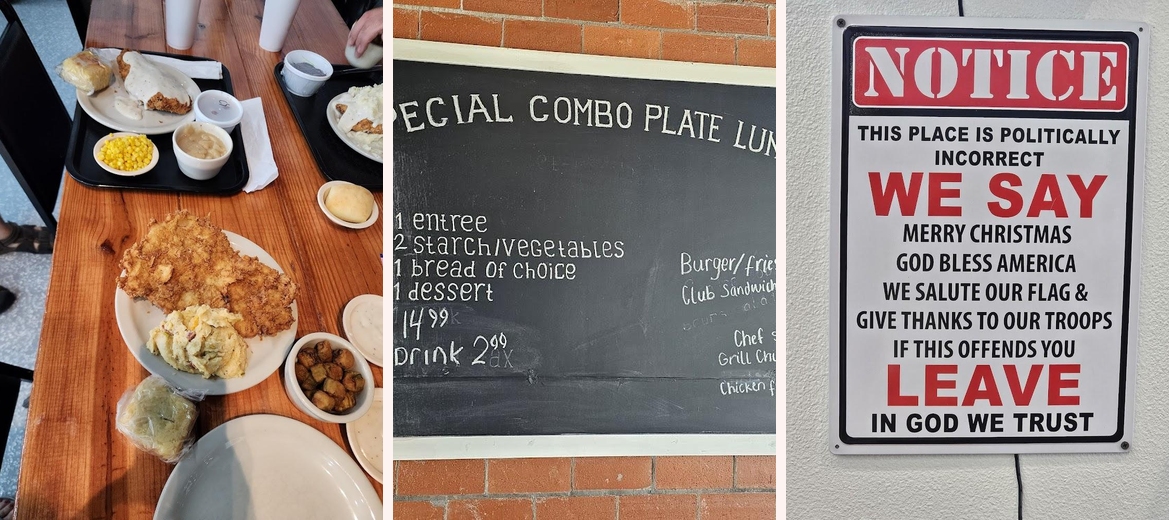 SPECIAL COMBO PLATE LUN
1 entree
2 starch/vegetables
1 bread of choice
1 dessert
14⁹⁹
Drink 2⁹⁹
Burger/fries
Club Sandwich
Chef
Grill
Chicken
NOTICE
THIS PLACE IS POLITICALLY
INCORRECT
WE SAY
MERRY CHRISTMAS
GOD BLESS AMERICA
WE SALUTE OUR FLAG &
GIVE THANKS TO OUR TROOPS
IF THIS OFFENDS YOU
LEAVE
IN GOD WE TRUST